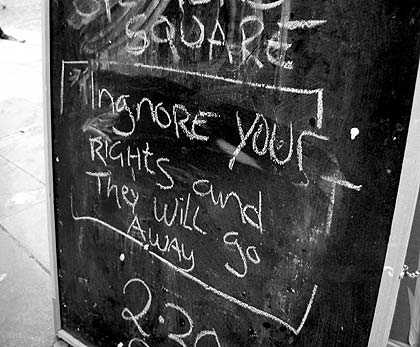 SQUARE
Ingnore your
RIGHTS and
They will go
AWAY
2.30